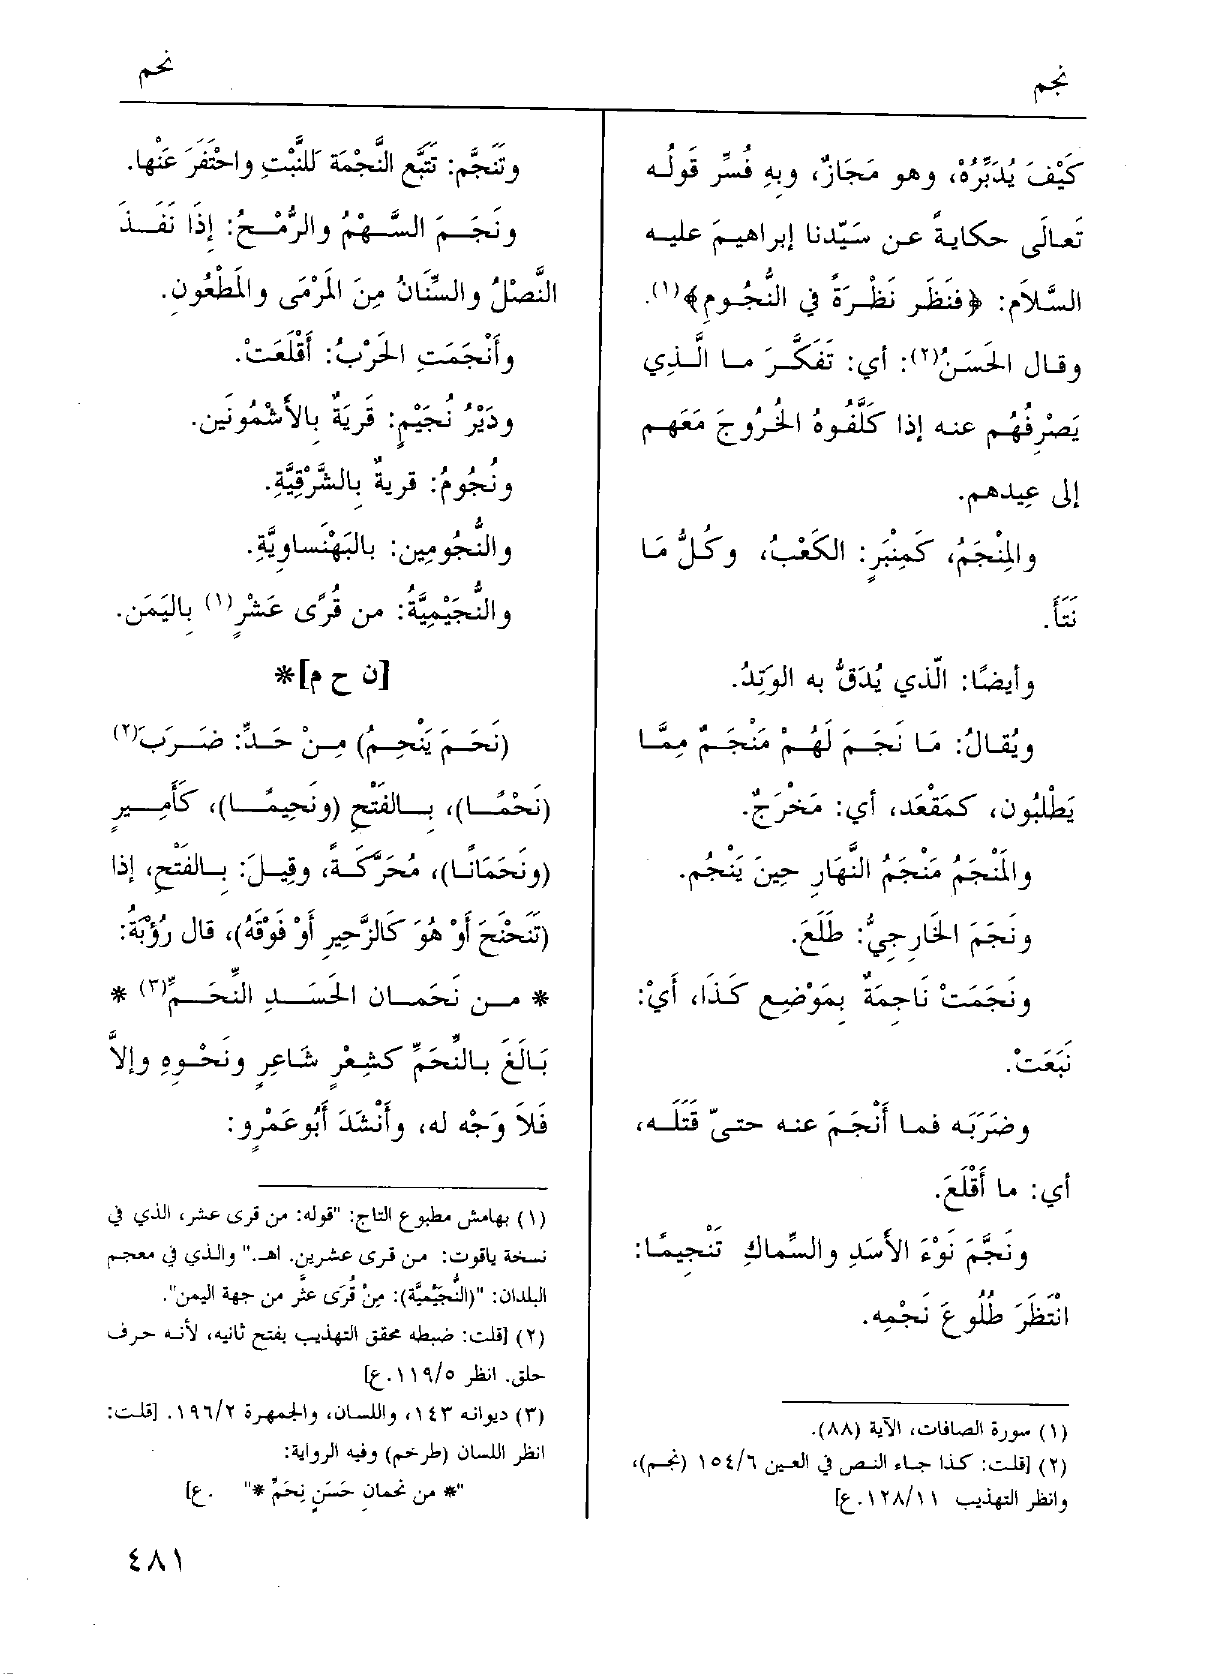 نجم
نحم
كَيْفَ يُدَبِّرُهُ، وهو مَجَازٌ، وبِهِ فُسِّرَ قَولُه
تَعالَى حكايةً عن سَيِّدنا إبراهيمَ عليه
السَّلاَم: ﴿فنَظَر نَظْرَةً في النُّجُومِ﴾(١).
وقال الحَسَنُ(٢): أي: تَفَكَّرَ ما الَّذِي
يَصْرِفُهُم عنه إذا كَلَّفُوهُ الخُرُوجَ مَعَهم
إلى عِيدهم.
والمِنْجَمُ، كَمِنْبَرٍ: الكَعْبُ، وكُلُّ مَا
نَتَأَ.
وأيضًا: الّذي يُدَقُّ به الوَتِدُ.
ويُقالُ: مَا نَجَمَ لَهُمْ مَنْجَمٌ مِمَّا
يَطْلُبُون، كمَقْعَد، أي: مَخْرَجٌ.
والمَنْجَمُ مَنْجَمُ النَّهارِ حِينَ يَنْجُم.
ونَجَمَ الخَارِجِيُّ: طَلَعَ.
ونَجَمَتْ نَاجِمَةٌ بِمَوْضِع كَذَا، أَيْ:
نَبَعَتْ.
وضَرَبَه فما أَنْجَمَ عنه حتىّ قَتَلَه،
أي: ما أَقْلَعَ.
ونَجَّمَ نَوْءَ الأَسَدِ والسِّماكِ تَنْجِيمًا:
انْتَظَرَ طُلُوعَ نَجْمِه.
(١) سورة الصافات، الآية (٨٨).
(٢) [قلت: كذا جاء النص في العين ١٥٤/٦ (نجم)،
وانظر التهذيب ١٢٨/١١.ع]
وتَنَجَّم: تَتَبَّع النَّجْمَة للنَّبْتِ واحْتَفَرَ عَنْها.
ونَجَم السَّهْمُ والرُّمْحُ: إذَا نَفَذَ
النَّصْلُ والسِّنَانُ مِنَ المَرْمَى والمَطْعُونِ.
وأَنْجَمَتِ الحَرْبُ: أَقْلَعَتْ.
ودَيْرُ نُجَيْمٍ: قَرِيَةٌ بِالأَشْمُونَين.
ونُجُومُ: قريةٌ بِالشَّرْقِيَّةِ.
والنُّجُومِين: بالبَهْنَساوِيَّةِ.
والنُّجَيْمِيَّةُ: من قُرًى عَشْرٍ(١) بِاليَمَن.
[ن ح م]*
(نَحَم يَنْحِمُ) مِنْ حَدِّ: ضَرَبَ(٢)
(نَحْمًا)، بِالفَتْحِ (ونَحِيمًا)، كَأَمِيرٍ
(ونَحَمَانًا)، مُحَرَّكَةً، وقِيلَ: بِالفَتْحِ، إذا
(تَنَحْنَحَ أَوْ هُوَ كَالزَّحِيرِ أَوْ فَوْقَهُ)، قال رُؤْبَةُ:
* من نَحَمان الحَسَدِ النِّحَمِّ(٣) *
بَالَغَ بالنِّحَمِّ كشِعْرٍ شَاعِرٍ ونَحْوِهِ وإلاَّ
فَلاَ وَجْه له، وأَنْشَدَ أَبُو عَمْرٍو:
(١) بهامش مطبوع التاج: "قوله: من قرى عشر، الذي في
نسخة ياقوت: من قرى عشرين. اهـ." والذي في معجم
البلدان: "(النُّجَيْمِيَّة): مِنْ قُرَى عثَّر من جهة اليمن".
(٢) [قلت: ضبطه محقق التهذيب بفتح ثانيه، لأنه حرف
حلق. انظر ١١٩/٥.ع]
(٣) ديوانه ١٤٣، واللسان، والجمهرة ١٩٦/٢. [قلت:
انظر اللسان (طرخم) وفيه الرواية:
"* من نحمانِ حَسَنٍ نِحَمِّ *" .ع]
٤٨١